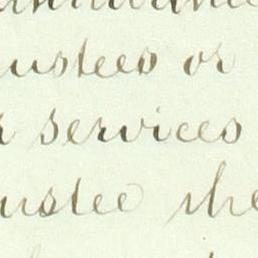 ustees or
services
ustee the